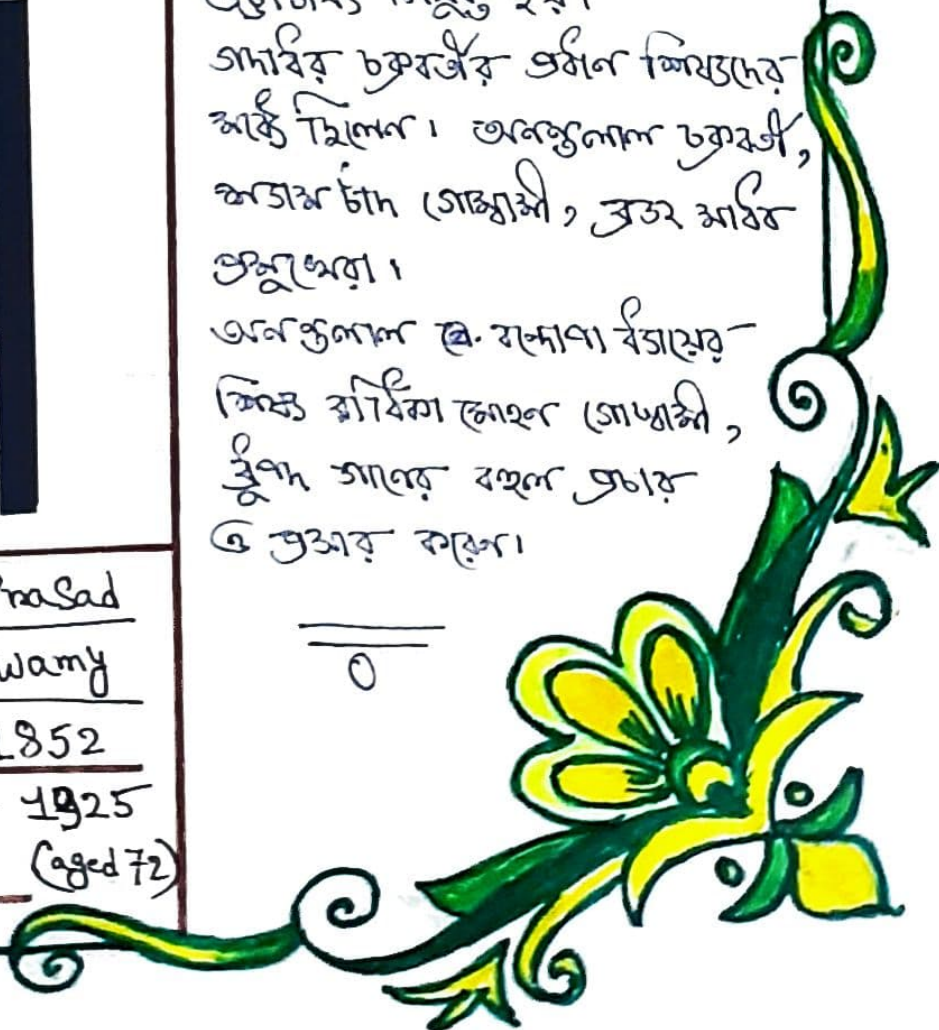 গদাধর চক্রবর্তীর প্রধান শিষ্যদের
মধ্যে ছিলেন। অনন্তলাল চক্রবর্তী,
শ্যাম চাঁদ গোস্বামী, ব্রতং মাধব
প্রমুখেরা।
অনন্তলাল বন্দোপাধ্যায়ের
শিষ্য রাধিকা মোহন গোস্বামী,
ধ্রুপদ গানের বহুল প্রচার
ও প্রসার করেন।
nasad
wamy
1852
1925
(aged 72)